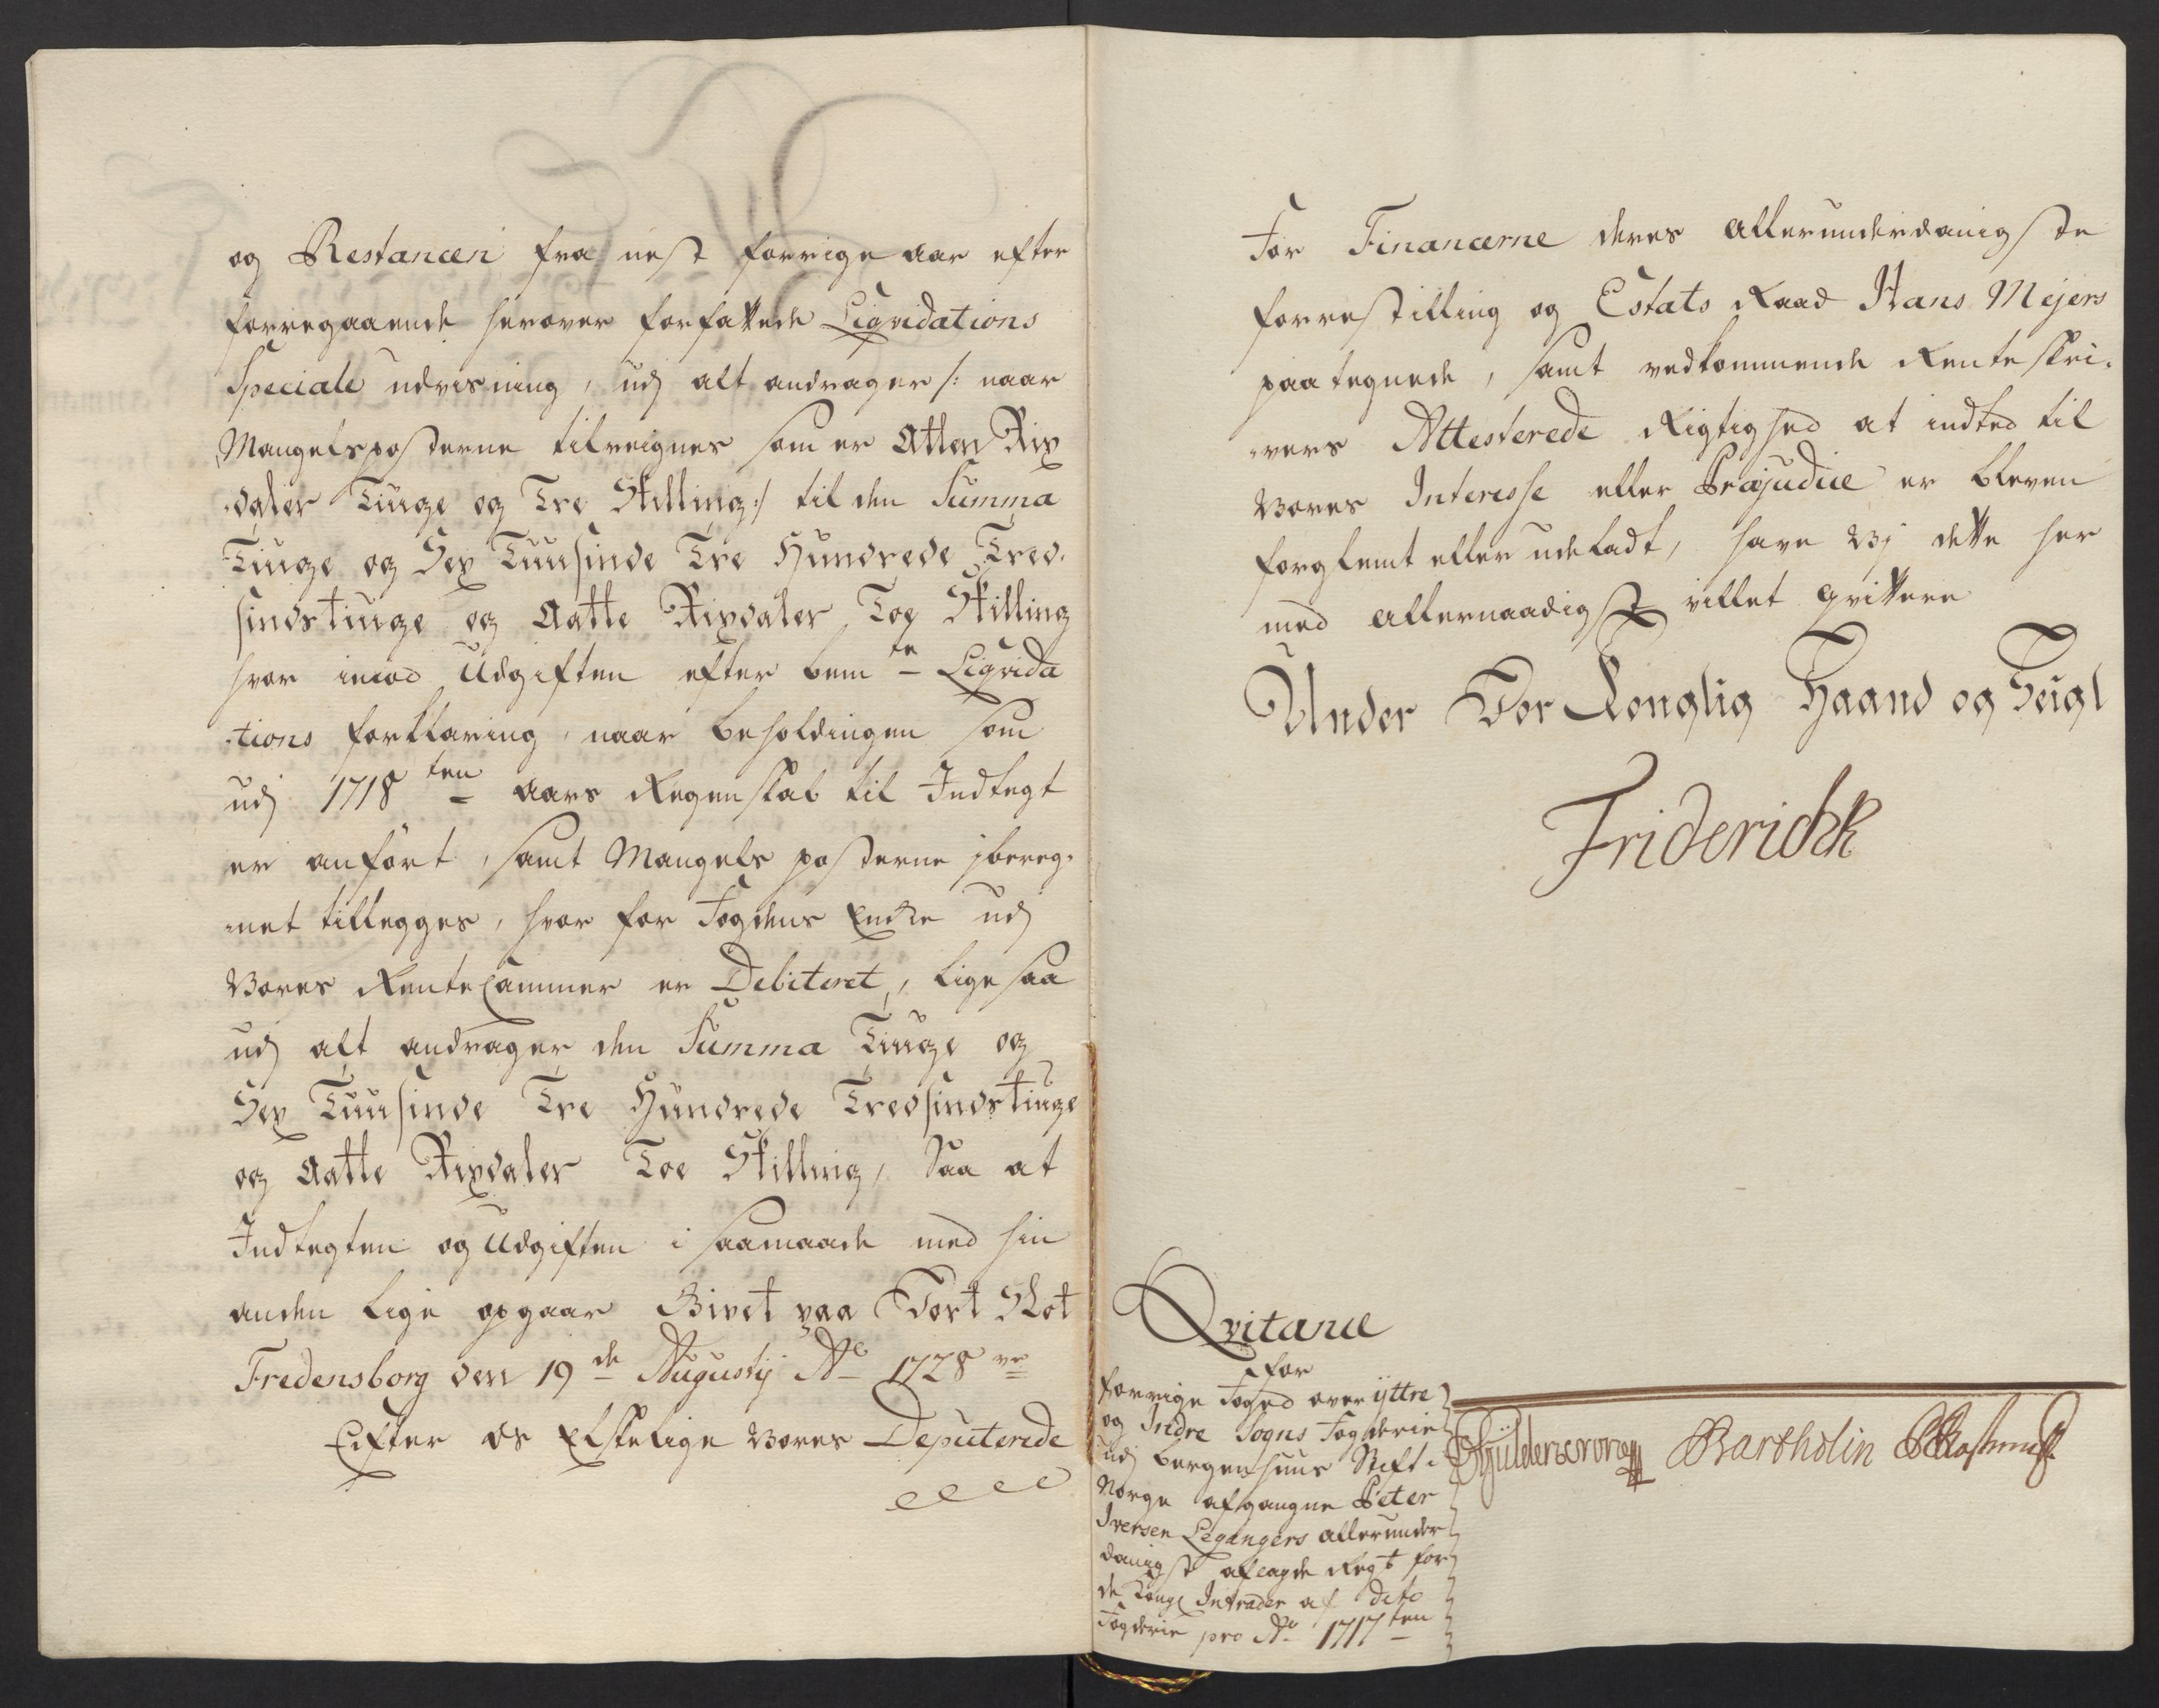 og Restancen fra nest forrige aar efter
forregaaende herover forfattede Liqvidations
Speciale udvisning, udj alt andrager /: naar
Mangelsposterne tilreignes som er Atten Rix
-daler Tiuge og Tre Skilling :/ til den Summa
Tiuge og Sex Tuusinde Tre Hundrede Tred-
sindstiuge og Aatte Rixdaler Toe Skilling
hvor imod Udgiften efter bemte Liqvida
-tions forklaring, naar beholdingen som
udj 1718ten aars Regenskab til Indtegt
er anført, samt Mangels posterne jbereg-
-net tillegges, hvor for Fogdens Encke udj
Vores RenteCammer er Debiteret, lige saa
udj alt andrager den Summa Tiuge og
Sex Tuusinde Tre Hundrede Tredsindstiuge
og Aatte Rixdaler Toe Skilling, Saa at
Indtegten og Udgiften i saamaade med hin
anden lige opgaar Givet paa Vort Slot
Fredensborg den 19de Augustij Ao 1728ve
Efter os Elskelige Vores Deputerede
For Financerne deres allerunderdanigste
forrestilling og Estats Raad Hans Mejers
paategnede, samt vedkommende Renteskri-
-vers Attesterede Rigtighed at indted til
Vores Interesse eller Præjudice er bleven
forglemt eller udeladt, have Vj dette her
med allernaadigst villet qvittere
Under Vor Konglig Haand og Seigl
Friderich R
Qvitance
for
forrige Foged over ÿttre
og Indre Sogns Fogderie
udj Bergenhuus Stift i
Norge afgangne Peter
Iversen Legangers allerunder
danigst aflagde Regt for
de Kongl Intrader af dito
Fogderie pro Ao 1717ten
Gyldencrone Bartholin